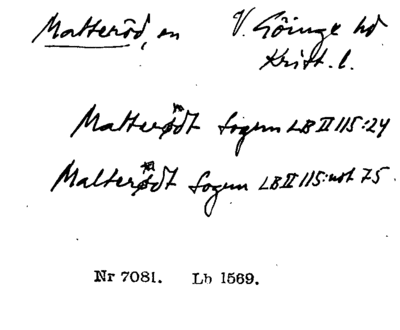 Matteröd, sn V. Göinge hd
Krist. l.
Matterødt sogen LB II 115:24
Malterødt sogen LB II 115: not 75.
Nr 7081. Lb 1569.